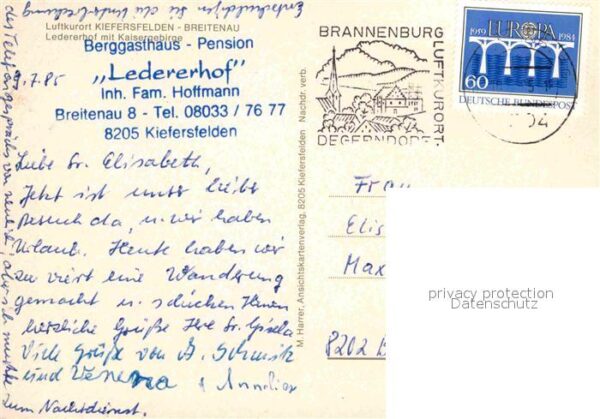 Luftkurort KIEFERSFELDEN - BREITENAU
Ledererhof mit Kaisergebirge
Berggasthaus - Pension
„Ledererhof"
Inh. Fam. Hoffmann
Breitenau 8 - Tel. 08033 / 76 77
8205 Kiefersfelden
9.7.85
Liebe Sr. Elisabeth,
Jetzt ist unser lieber
Besuch da, u. wir haben
Urlaub. Heute haben wir
zu viert eine Wanderung
gemacht u. schicken Ihnen
herzliche Grüße Ihre Sr. Gisela
Viele Grüße von
und Verena
Entschuldigen Sie die Unterbrechung
des Telefongesprächs von neulich, aber ich mußte
zum Nachtdienst.
M. Harrer, Ansichtskartenverlag, 8205 Kiefersfelden Nachdr. verb.
BRANNENBURG
LUFTKURORT
DEGERNDORF
EUROPA
1959 1984
60
DEUTSCHE BUNDESPOST
Frau
Elis
Max
8202 B
privacy protection
Datenschutz